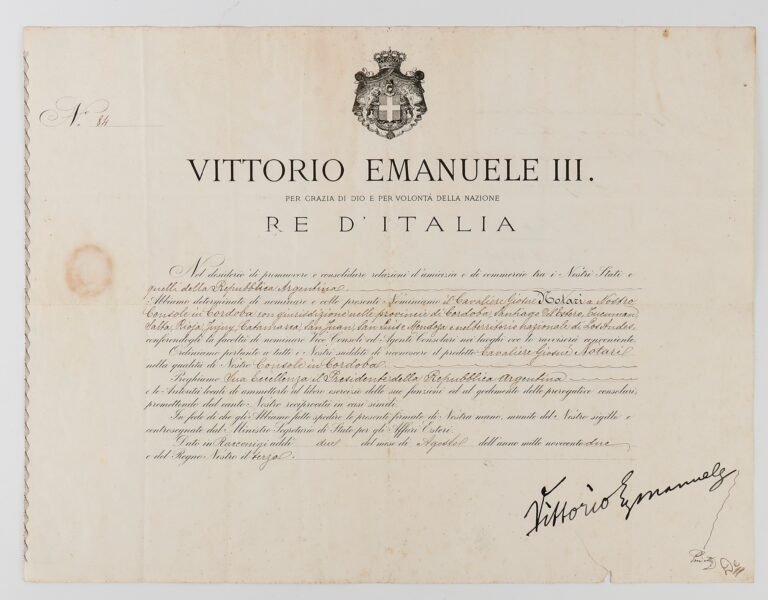 N.º 84
VITTORIO EMANUELE III.
PER GRAZIA DI DIO E PER VOLONTÁ DELLA NAZIONE
RE D'ITALIA
Nel desiderio di promuovere e consolidare relazioni d'amicizia e di commercio tra i Nostri Stati e
quelli della Repubblica Argentina
Abbiamo determinato di nominare e colle presenti Nominiamo il Cavaliere Giosuè Notari a Nostro
Console in Cordoba con giurisdizione nelle provincie di Cordoba, Santiago del Estero, Tucuman
Salta, Rioja, Jujuy, Catamarca, San Juan, San Luis e Mendoza e nel territorio nazionale di Los Andes,
conferendogli la facoltà di nominare Vice Consoli ed Agenti Consolari nei luoghi ove lo ravviserà conveniente.
Ordiniamo pertanto a tutti i Nostri sudditi di riconoscere il predetto Cavaliere Giosuè Notari
nella qualità di Nostro Console in Cordoba
Preghiamo Sua Eccellenza il Presidente della Repubblica Argentina
e le Autorità locali di ammetterlo al libero esercizio delle sue funzioni ed al godimento delle prerogative consolari,
promettendo dal canto Nostro reciprocità in casi simili.
In fede di che gli Abbiamo fatto spedire le presenti firmate di Nostra mano, munite del Nostro sigillo e
contrassegnate dal Ministro Segretario di Stato per gli Affari Esteri.
Dato in Racconigi addì due del mese di Agosto dell'anno mille novecento due
e del Regno Nostro il terzo.
Vittorio Emanuele